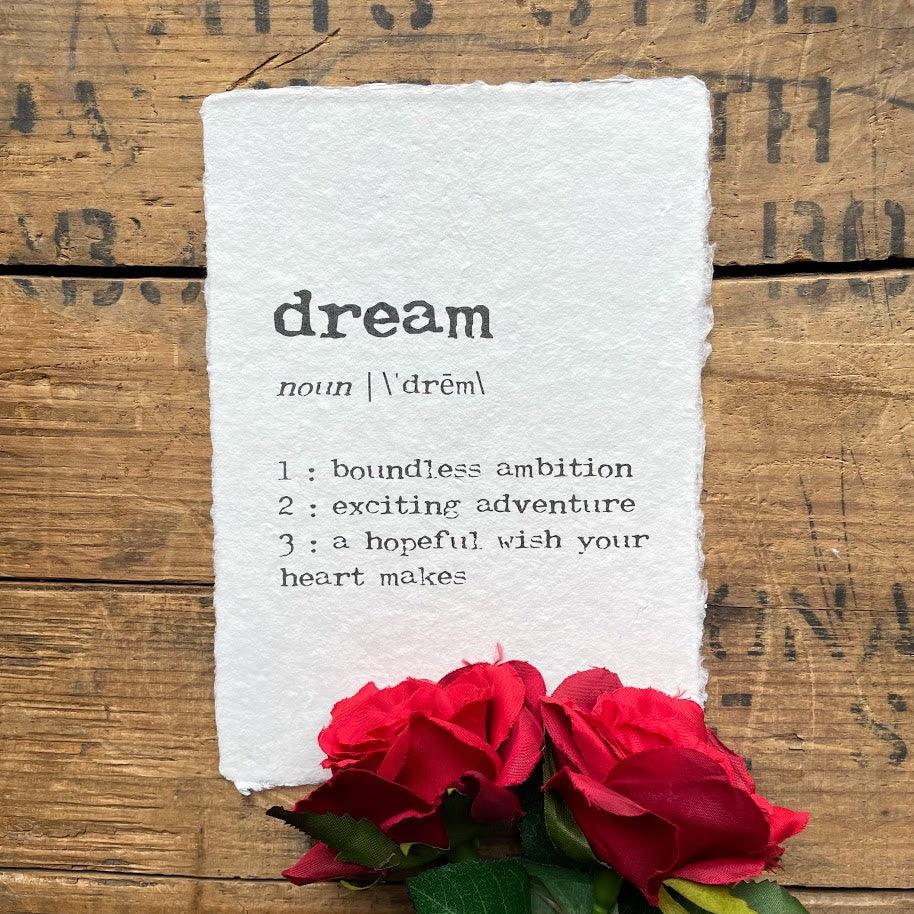 dream
noun | \ˈdrēm\
1 : boundless ambition
2 : exciting adventure
3 : a hopeful wish your
heart makes